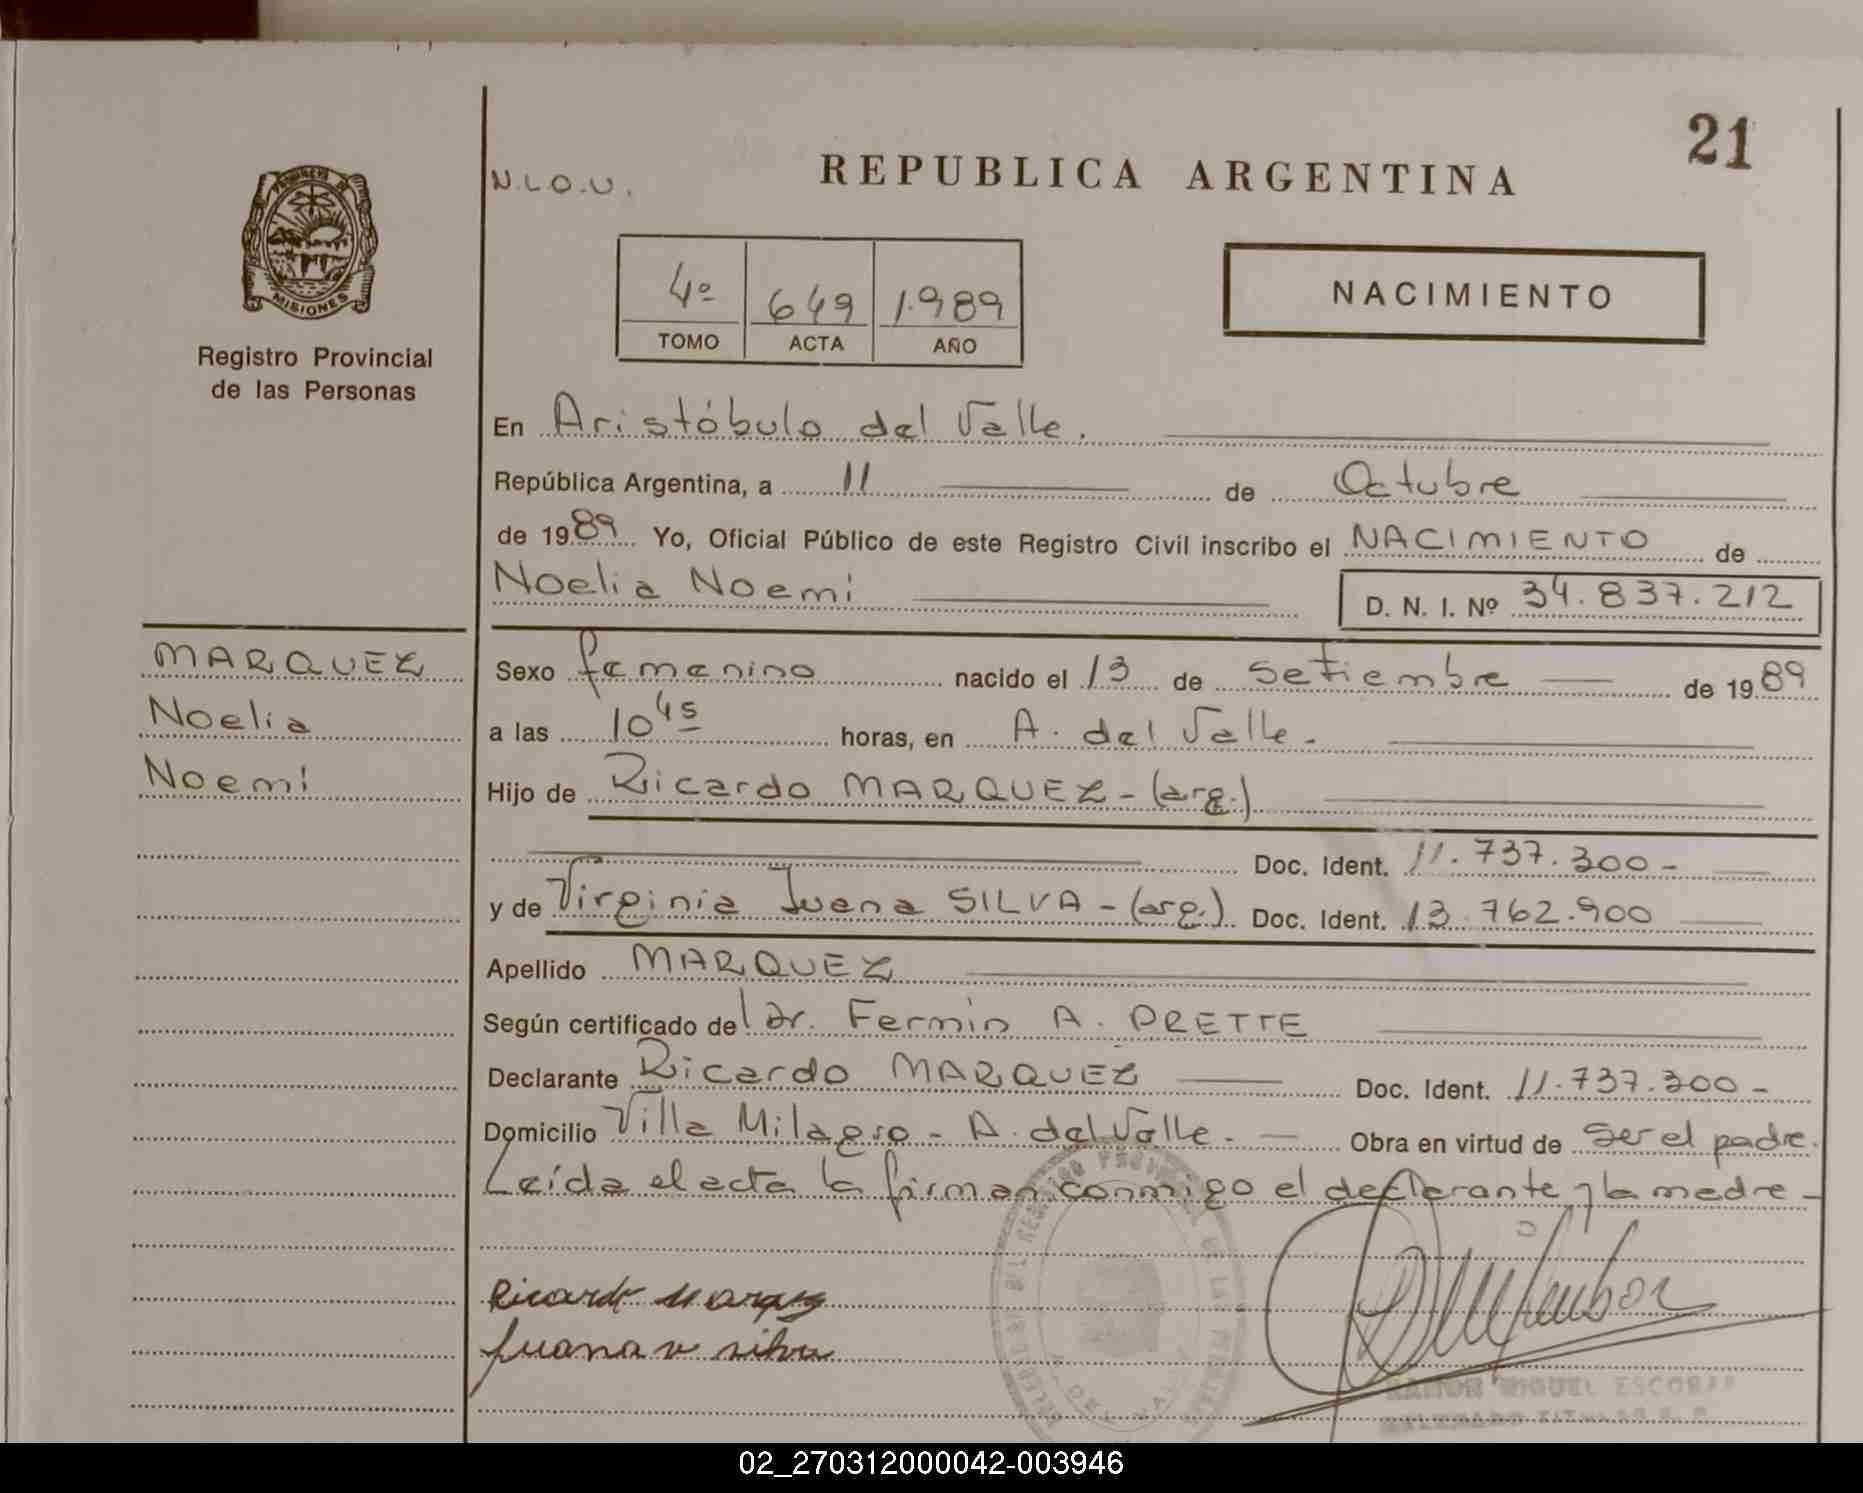 21
N.L.O.U.
REPUBLICA ARGENTINA
PROVINCIA DE
MISIONES
Registro Provincial
de las Personas
4º 649 1.989
TOMO ACTA AÑO
NACIMIENTO
En Aristóbulo del Valle.
República Argentina, a 11 de Octubre
de 1989 Yo, Oficial Público de este Registro Civil inscribo el NACIMIENTO de
Noelia Noemí D. N. I. Nº 34.837.212
MARQUEZ
Noelia
Noemí
Sexo femenino nacido el 13 de Setiembre de 1989
a las 10 45 horas, en A. del Valle.
Hijo de Ricardo MARQUEZ - (arg.)
Doc. Ident. 11.737.300-
y de Virginia Juana SILVA - (arg.) Doc. Ident. 13.762.900
Apellido MARQUEZ
Según certificado del dr. Fermín A. PRETTE
Declarante Ricardo MARQUEZ Doc. Ident. 11.737.300-
Domicilio Villa Milagro - A. del Valle. Obra en virtud de ser el padre.
Leída el acta la firman conmigo el declarante y la madre-
Ricardo Marquez
Juana v silva
RAMON MIGUEL ESCOBAR
DELEGADO TITULAR
02_270312000042-003946